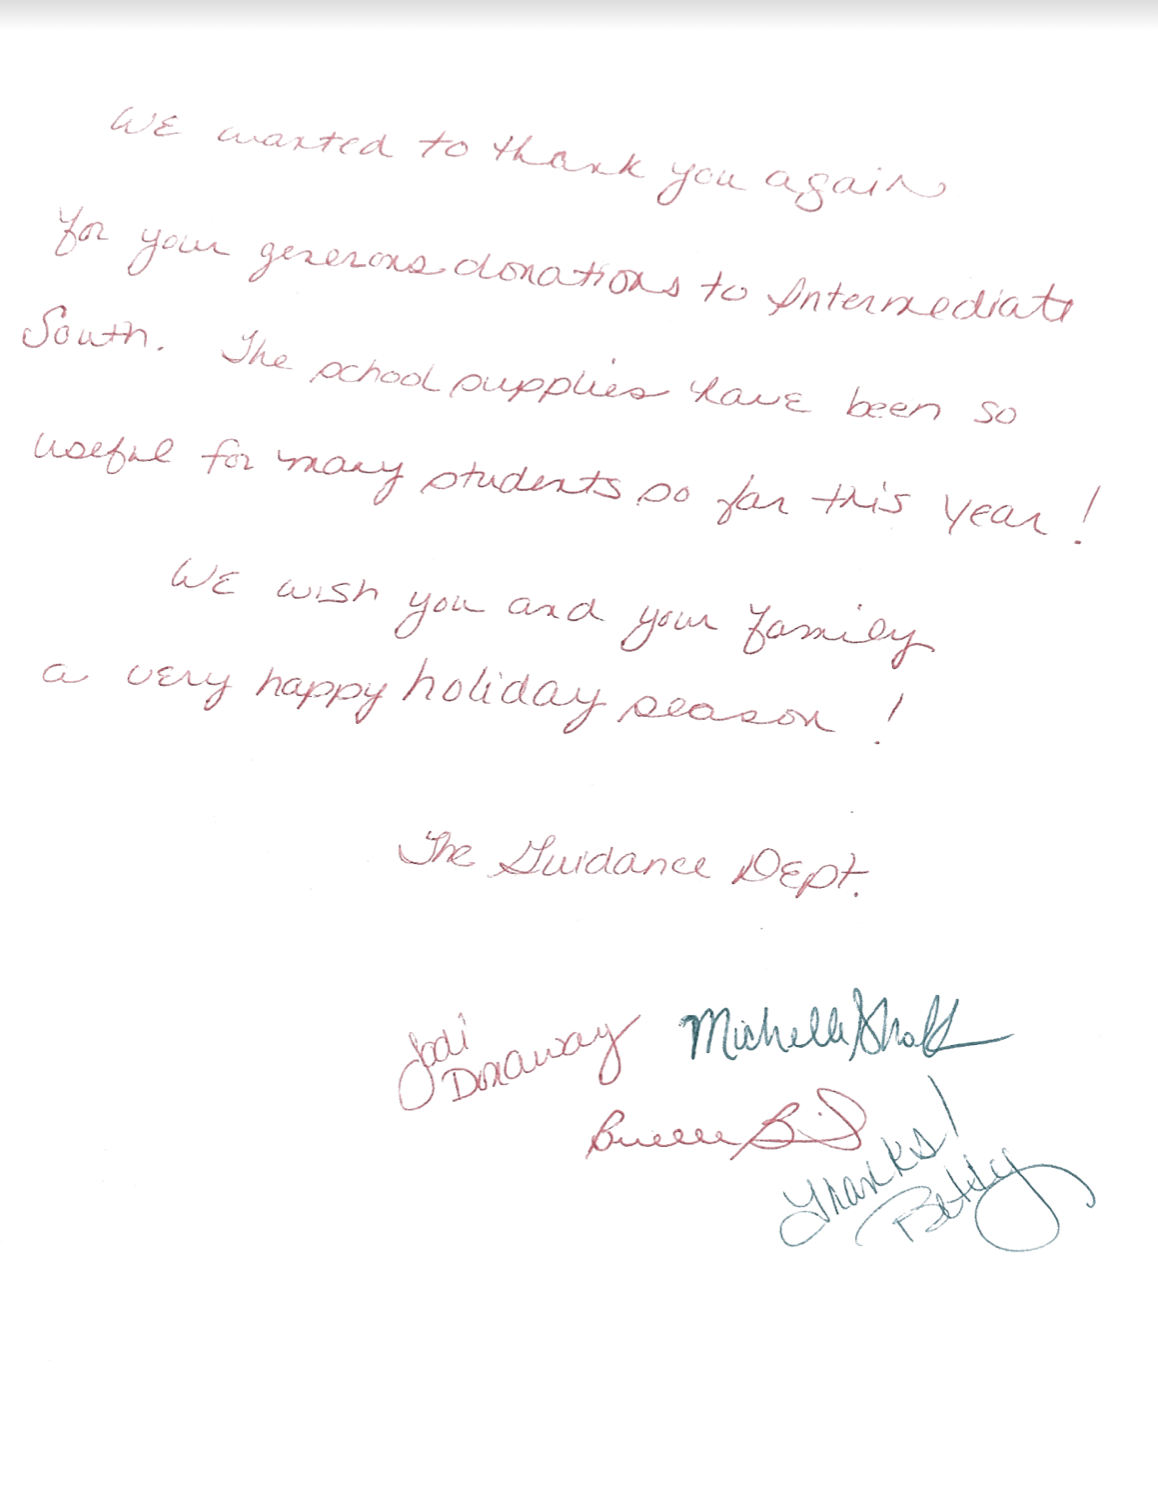 We wanted to thank you again
for your generous donations to Intermediate
South. The school supplies have been so
useful for many students so far this year!
We wish you and your family
a very happy holiday season!
The Guidance Dept.
Jodi
Donaway
Michelle
Thanks!
Betsy